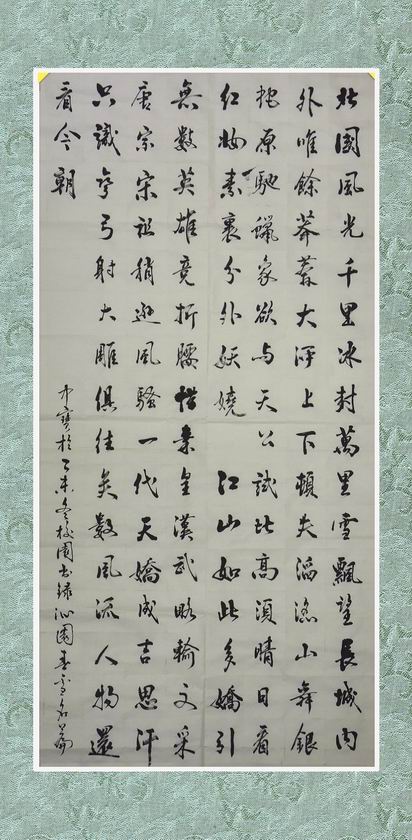 北國風光千里冰封萬里雪飄望長城内
外唯餘莽莽大河上下頓失滔滔山舞銀
蛇原馳蠟象欲与天公試比高須晴日看
红妝素裹分外妖嬈江山如此多嬌引
無數英雄竟折腰惜秦皇漢武略輸文采
唐宗宋祖稍遜風騷一代天嬌成吉思汗
只識彎弓射大雕俱往矣數風流人物還
看今朝
寶於乙未冬校園书錄沁園春雪名篇